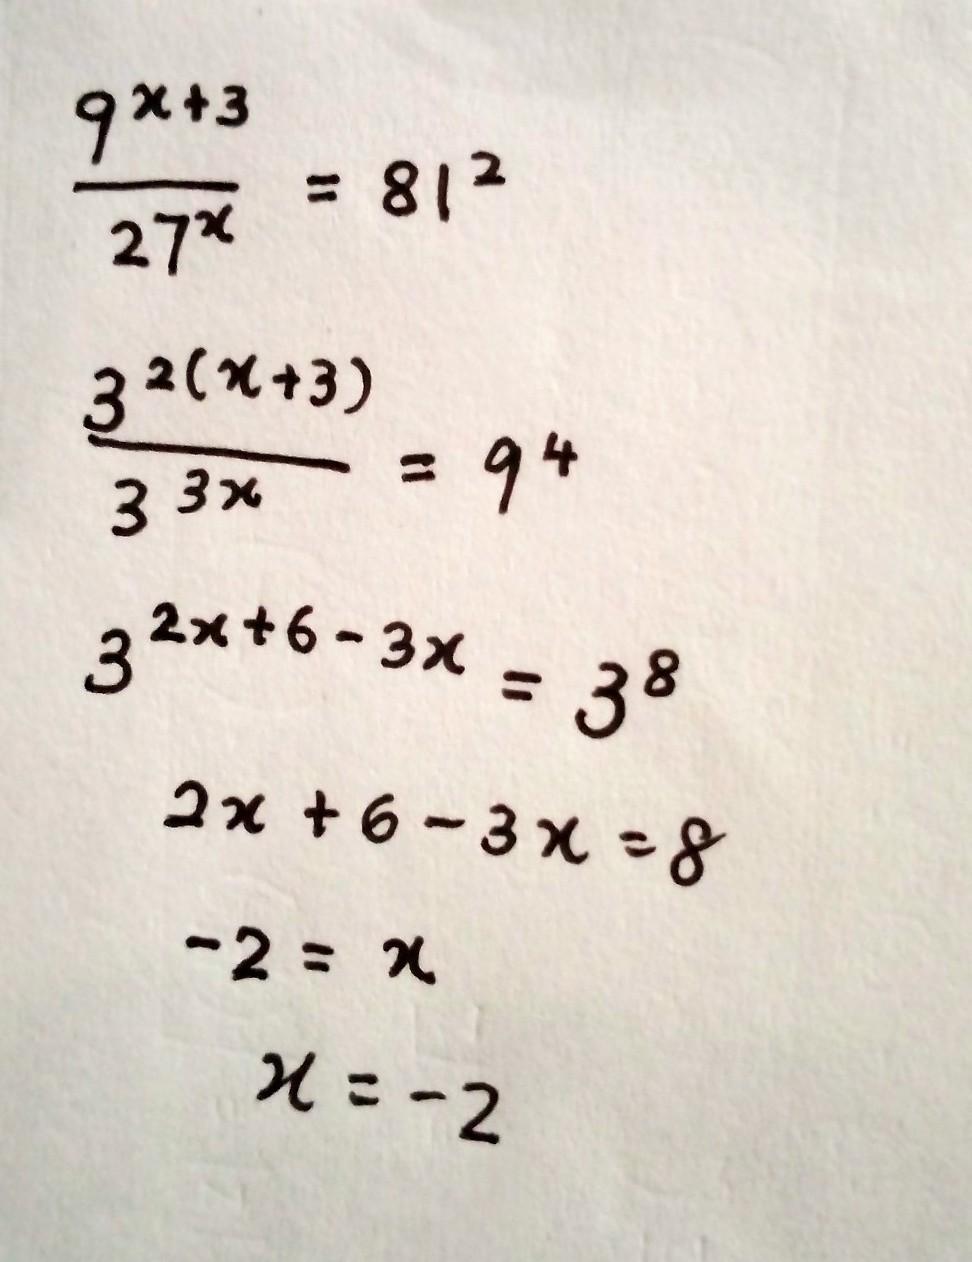 9^{x+3} / 27^x = 81^2
3^{2(x+3)} / 3^{3x} = 9^4
3^{2x+6-3x} = 3^8
2x + 6 - 3x = 8
-2 = x
x = -2